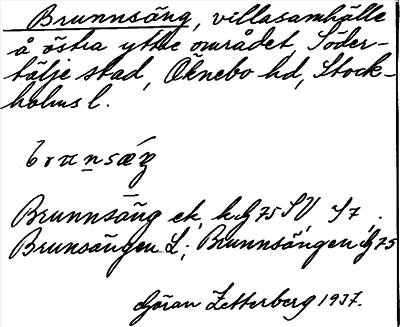 Brunnsäng, villasamhälle
å östra yttre området, Söder-
tälje stad, Öknebo hd, Stock-
holms l.
Brunnsäng ek, k. Hg 75 SV, S 7,
Brunsängen L; Brunnsängen Hg 75
Göran Zetterberg 1937.